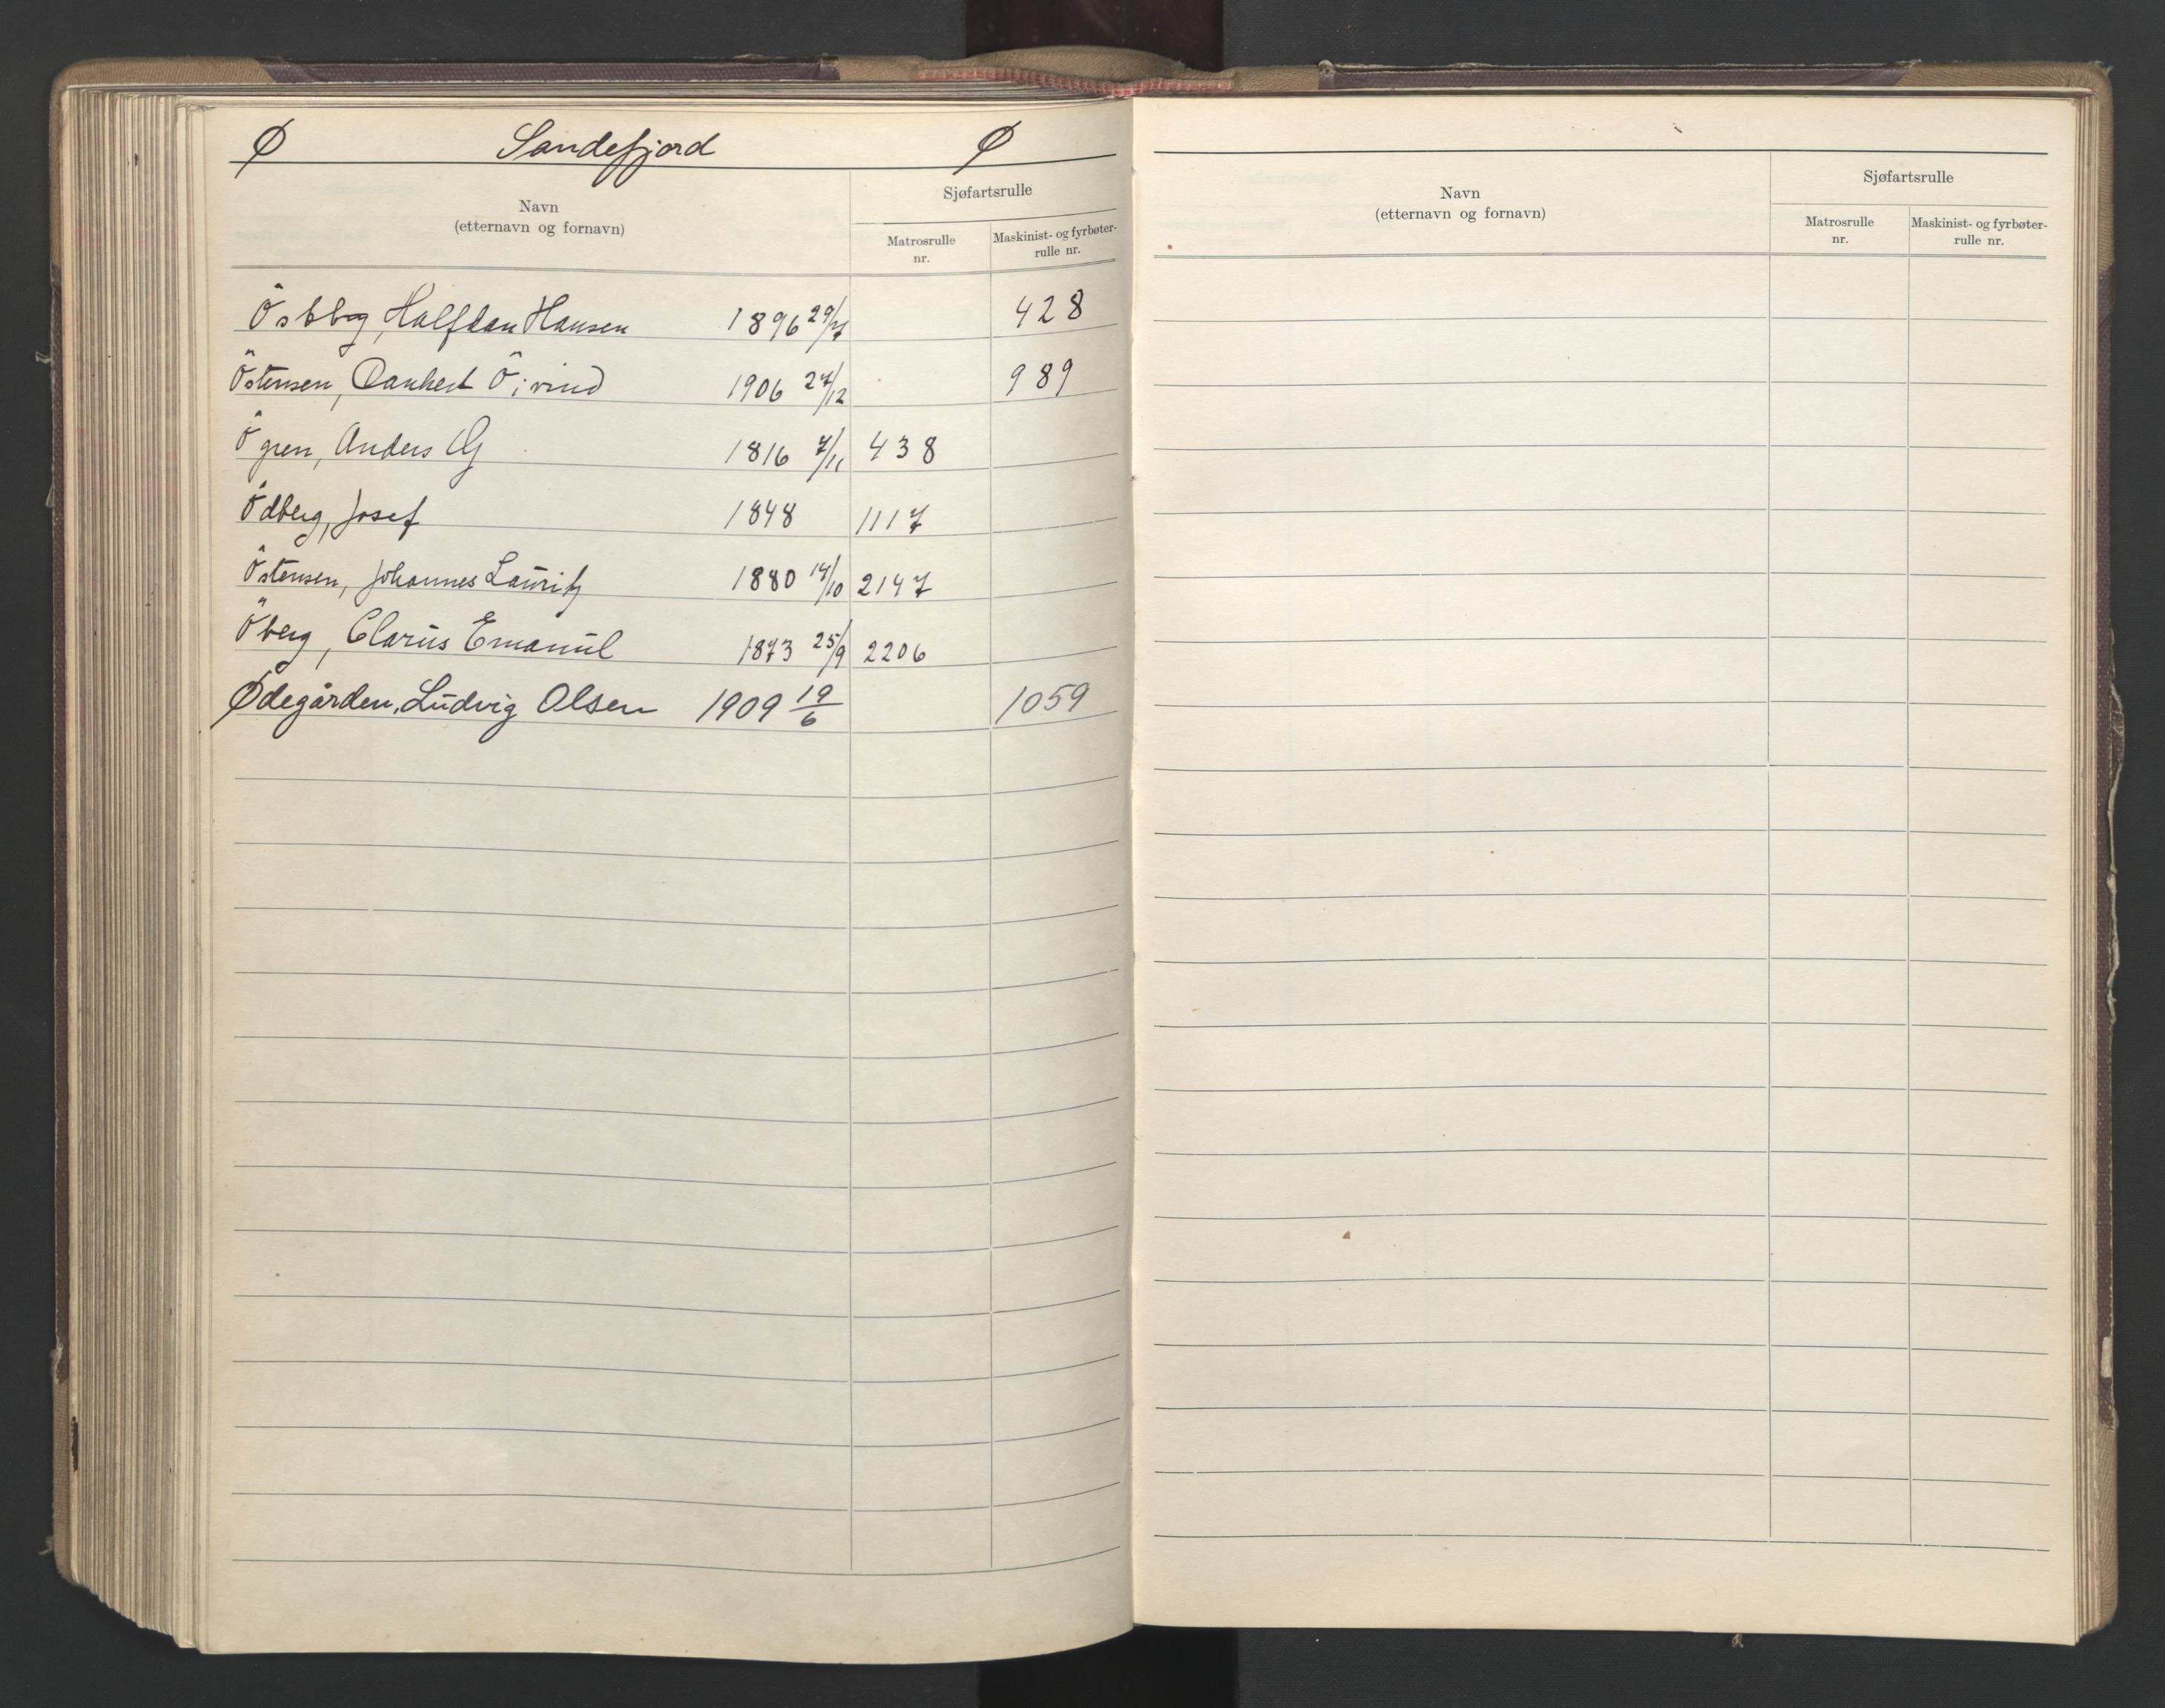 Ø Sandefjord Ø
Navn
(etternavn og fornavn)
Sjøfartsrulle
Matrosrulle
nr.
Maskinist- og fyrbøter-
rulle nr.
Halfdan Hansen 1896 29/7 428
Östensen, Öivind 1906 27/12 989
Ögren, Anders 1816 7/11 438
Ödberg, Josef 1848 1117
Östensen, Johannes Lauritz 1880 14/10 2147
Öberg, Clarus Emanuel 1873 25/9 2206
Ødegården, Ludvig Olsen 1909 19/6 1059
Navn
(etternavn og fornavn)
Sjøfartsrulle
Matrosrulle
nr.
Maskinist- og fyrbøter-
rulle nr.